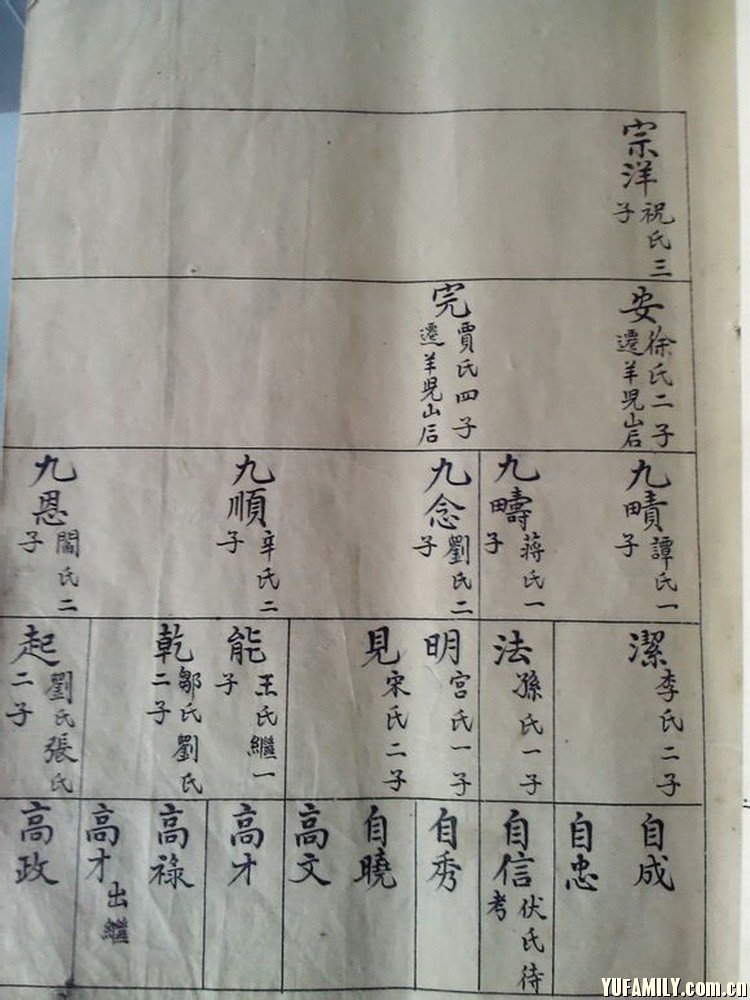 宗洋 祝氏三子
安 徐氏二子遷羊児山后
完 賈氏四子遷羊児山后
九㱴 譚氏一子
九疇 蔣氏一子
九念 劉氏二子
九順 辛氏二子
九恩 閻氏二子
潔 李氏二子
法 孫氏一子
明 宫氏一子
見 宋氏二子
能 王氏繼一子
乾 鄒氏劉氏二子
起 劉氏張氏二子
自成
自忠
自信 伏氏待考
自秀
自曉
高文
高才
高祿
高才 出繼
高政
YUFAMILY.com.cn